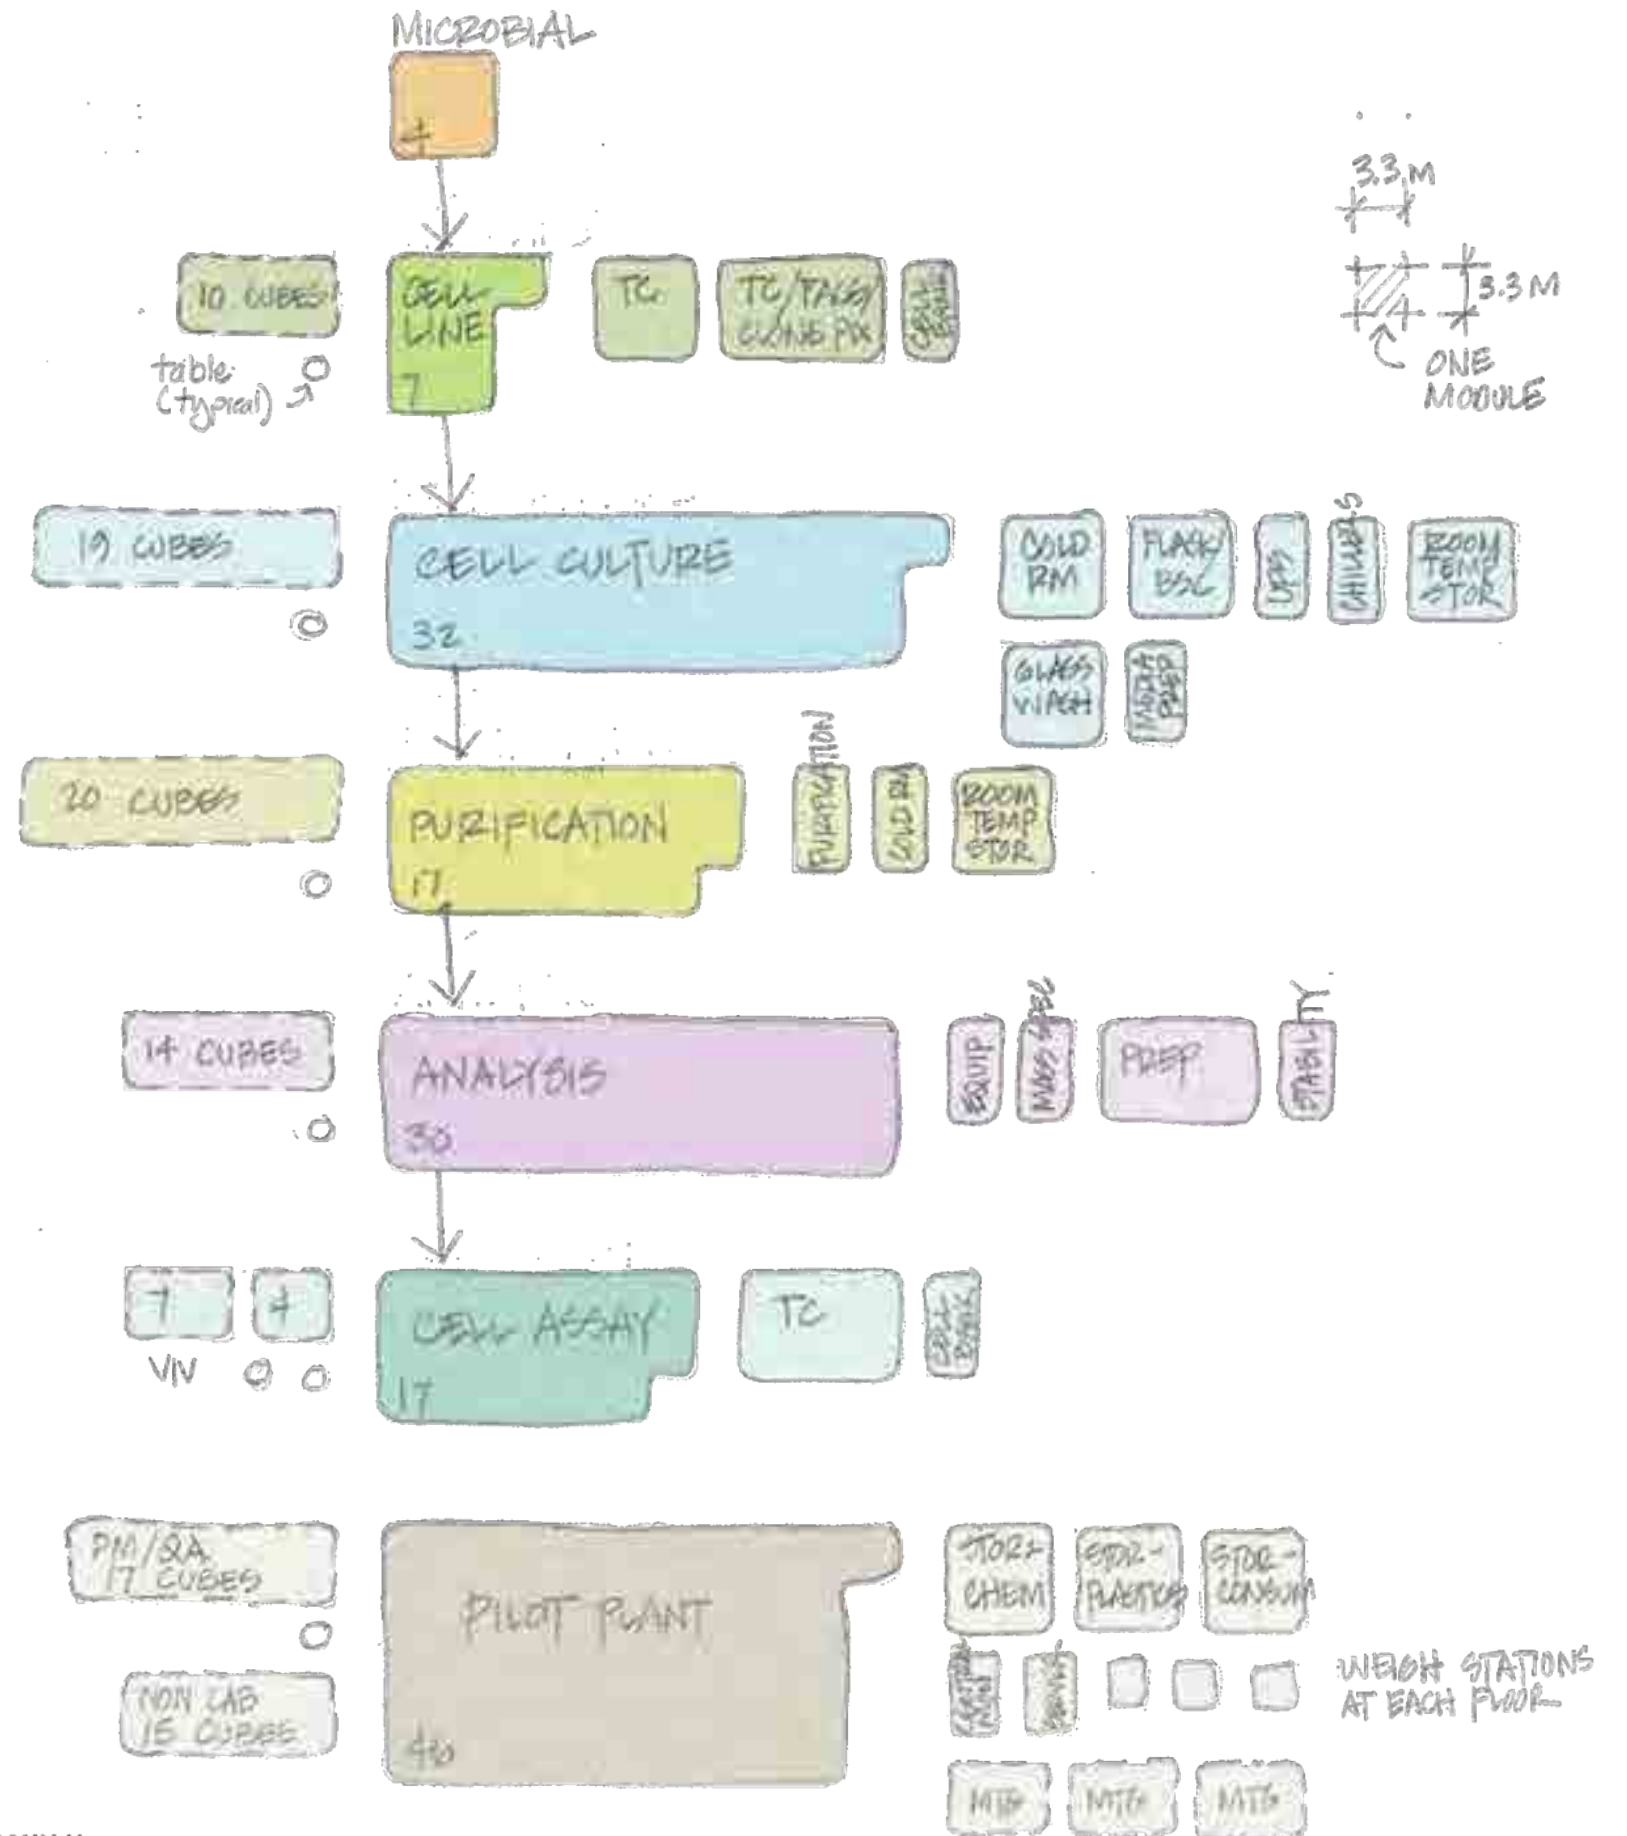 MICROBIAL
4
3.3 M
3.3 M
ONE
MODULE
10 CUBES
table
(typical)
CELL
LINE
7
TC
TC/FACS/
CLONE PIX
CELL
BANK
19 CUBES
CELL CULTURE
32
COLD
RM
FLASK/
BSC
UPS
CHILLERS
ROOM
TEMP
STOR
GLASS
WASH
MEDIA
PREP
20 CUBES
PURIFICATION
17
PURIFICATION
COLD RM
ROOM
TEMP
STOR
14 CUBES
ANALYSIS
30
EQUIP
MASS SPEC
PREP
STABILITY
7
4
VIV
CELL ASSAY
17
TC
CELL
BANK
PM/QA
17 CUBES
NON LAB
15 CUBES
PILOT PLANT
STOR-
CHEM
STOR-
PLASTICS
STOR-
CONSUM
WEIGH STATIONS
AT EACH FLOOR
MTG
MTG
MTG